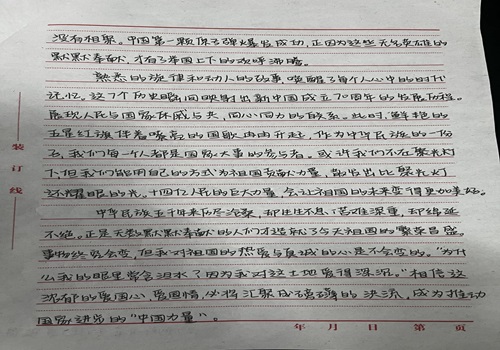 没有相聚。中国第一颗原子弹爆发成功,正因为这些无名英雄的
默默奉献,才有了举国上下的欢呼沸腾。
熟悉的旋律和动人的故事唤醒了每个人心中的时代
记忆。这7个历史瞬间映射出新中国成立70周年的发展历程。
展现人民与国家休戚与共,同心同力的联系。此时,鲜艳的
五星红旗伴着嘹亮的国歌冉冉升起,作为中华民族的一份
子,我们每一个人都是国家大事的参与者。或许我们不在聚光灯
下但我们能用自己的方式为祖国贡献力量,散发出比聚光灯
还耀眼的光。十四亿人民的巨大力量,会让祖国的未来变得更加美好。
中华民族五千年来历尽沧桑,却生生不息;苦难深重,却绵延
不绝。正是无数默默奉献的人们才造就了今天祖国的繁荣昌盛。
事物终究会变,但我对祖国的热爱与真诚的心是不会变的。"为什
么我的眼里常含泪水?因为我对这土地爱得深沉。"相信这
沉郁的爱国心,爱国情,必将汇聚成磅礴的洪流,成为推动
国家进步的"中国力量"。
装订线
年 月 日 第 页